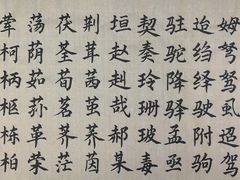 姆弩驽虱迢驾
迨绎驶附驹
驻驼降驿孟亟
契奏玲珊玻毒
垣赵赳哉郝某
荆茸茜茧荠茵
茯茎荀茗荞茫
荡荫茹荪荣
荤柯柄柩栋柏